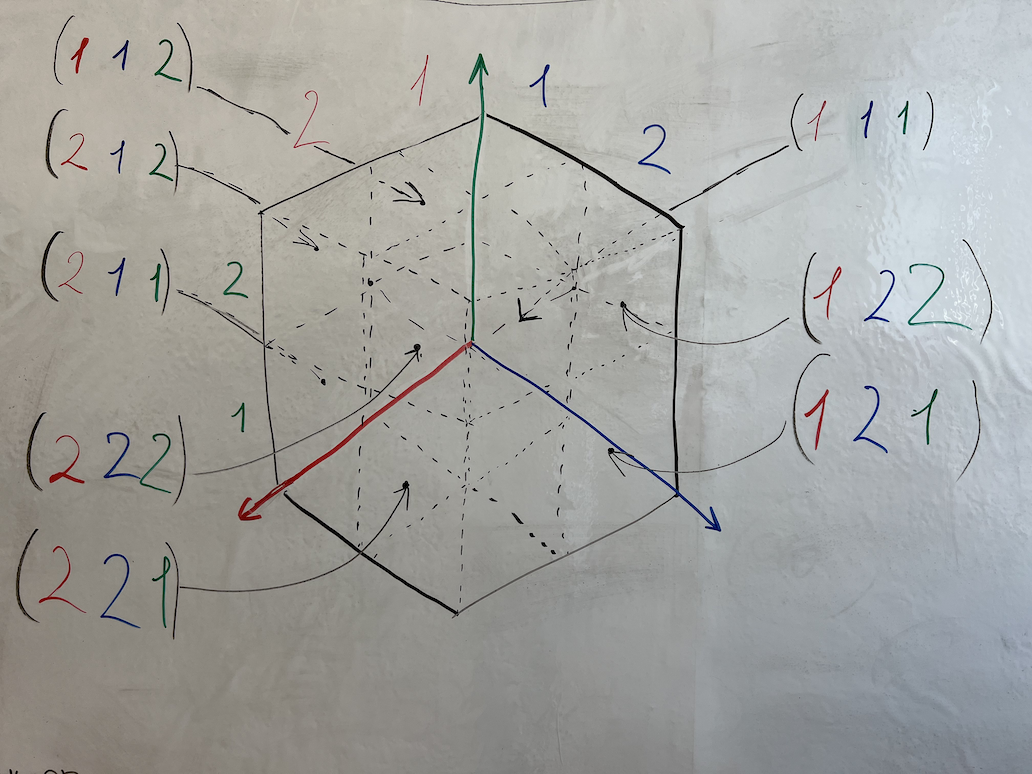 (1 1 2)
(2 1 2)
(2 1 1)
(2 2 2)
(2 2 1)
2 1
1 2
2
1
(1 1 1)
(1 2 2)
(1 2 1)